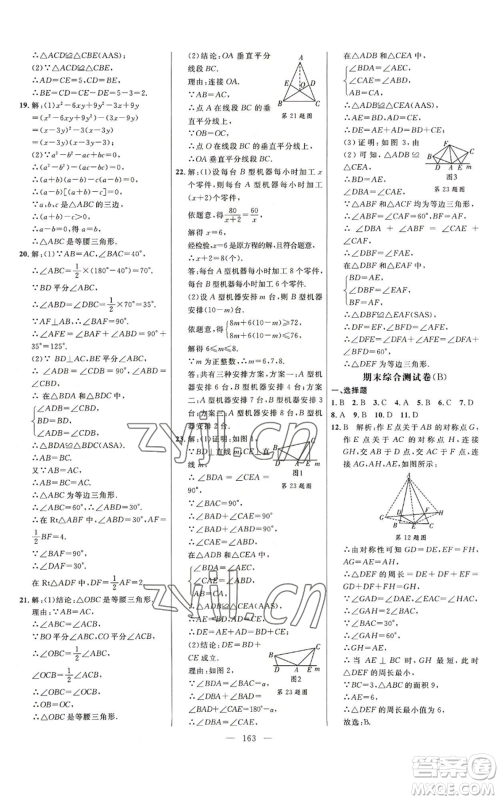 ∴△ACD≌△CBE(AAS);
(2)∵△ACD≌△CBE,
∴AD=CE=5,CD=BE,
∴BE=CE-DE=5-3=2.
19. 解:(1)x²-6xy+9y²-3x+9y
=(x²-6xy+9y²)-(3x-9y)
=(x-3y)²-3(x-3y)
=(x-3y)(x-3y-3)
(2)∵a²-b²-ac+bc=0,
∴(a²-b²)-(ac-bc)=0,
∴(a+b)(a-b)-c(a-b)=0,
∴(a-b)[(a+b)-c]=0,
∵a,b,c是△ABC的三边,
∴(a+b)-c>0,
∴a-b=0,得a=b,
∴△ABC是等腰三角形.
20. 解:(1)∵AB=AC,∠BAC=40°,
∴∠ABC=1/2×(180°-40°)=70°,
∵BD平分∠ABC,
∴∠ABD=∠DBC=1/2×70°=35°,
∵AF⊥AB,
∴∠BAF=90°,
∴∠AFE=∠BAF+∠ABD=90°+35°=125°.
(2)∵BD平分∠ABC,BD⊥AC,
∴∠ABD=∠CBD,∠ADB=∠CDB=90°,
在△ABD和△CBD中,
∠ABD=∠CBD
BD=BD
∠ADB=∠CDB
∴△ABD≌△CBD(ASA),
∴AB=CB,
∵AB=AC,
∴AB=AC=BC,
∴△ABC为等边三角形,
∴∠ABC=60°,∠ABD=30°,
∵在Rt△ABF中,∠ABF=30°,
∴AF=1/2BF=4.
在Rt△ADF中,DF=1/2AF=2.
21. 解:(1)结论:△OBC是等腰三角形.
理由:∵AB=AC,
∴∠ABC=∠ACB,
∵BO平分∠ABC,CO平分∠ACB,
∴∠OBC=1/2∠ABC,
∠OCB=1/2∠ACB,
∴∠OBC=∠OCB,
∴OB=OC,
∴△OBC是等腰三角形.
(2)结论:OA垂直平分线段BC.
理由:连接OA.
∵AB=AC,
∴点A在线段BC的垂直平分线上,
∵OB=OC,
∴点O在线段BC的垂直平分线上,
∴OA垂直平分线段BC.
第21题图
22. 解:(1)设每台B型机器每小时加工x个零件,则每台A型机器每小时加工(x+2)个零件,
依题意,得80/(x+2)=60/x,
解得x=6,
经检验,x=6是原方程的解,且符合题意,
∴x+2=8(个).
答:每台A型机器每小时加工8个零件,每台B型机器每小时加工6个零件.
(2)设A型机器安排m台,则B型机器安排(10-m)台,
依题意,得{8m+6(10-m)≥72, 8m+6(10-m)≤76,
解得6≤m≤8.
∵m为正整数,
∴m=6,7,8.
答:共有三种安排方案,方案一:A型机器安排6台,B型机器安排4台;方案二:A型机器安排7台,B型机器安排3台;方案三:A型机器安排8台,B型机器安排2台.
23. 解:(1)证明:如图1,
∵BD⊥直线m,CE⊥直线m,
∴∠BDA=∠CEA=90°,
∵∠BAC=90°,
∴∠BAD+∠CAE=90°,
∵∠BAD+∠ABD=90°,
∴∠CAE=∠ABD,
在△ADB和△CEA中,
∠ABD=∠CAE
∠BDA=∠CEA
AB=CA
∴△ADB≌△CEA(AAS),
∴AE=BD,AD=CE,
∴DE=AE+AD=BD+CE.
图1
第23题图
(2)结论:DE=BD+CE成立.
理由:如图2,
∵∠BDA=∠BAC=α,
∴∠DBA+∠BAD=∠BAD+∠CAE=180°-α,
∴∠DBA=∠CAE,
图2
第23题图
在△ADB和△CEA中,
∠BDA=∠AEC
∠DBA=∠CAE
AB=AC
∴△ADB≌△CEA(AAS),
∴AE=BD,AD=CE,
∴DE=AE+AD=BD+CE.
(3)证明:如图3,
由(2)可知,△ADB≌△CEA,
∴BD=AE,∠DBA=∠CAE,
∵△ABF和△ACF均为等边三角形,
∴∠ABF=∠CAF=60°,BF=AF,
∴∠DBA+∠ABF=∠CAE+∠CAF,
∴∠DBF=∠FAE,
∵在△DBF和△EAF中,
FB=FA
∠FBD=∠FAE
BD=AE
∴△DBF≌△EAF(SAS),
∴DF=EF,∠BFD=∠AFE,
∴∠DFE=∠DFA+∠AFE=∠DFA+∠BFD=60°,
∴△DEF为等边三角形.
图3
第23题图
期末综合测试卷(B)
一、选择题
1. B 2. B 3. B 4. D 5. A 6. B 7. C 8. D 9. A 10. D 11. D
12. B 解析:作E点关于AC的对称点G,作E点关于AB的对称点H,连接GH交AC于D、交AB于F点,连接AG,AH,AE,如图所示:
第12题图
∴由对称性可知GD=DE,EF=FH,AG=AE=AH,
∴△DEF的周长=DE+DF+EF=GH,
∵∠GAC=∠CAE,∠EAB=∠BAH,
∴∠GAH=2∠CAB,
∵∠CAB=30°,
∴∠GAH=60°,
∴△AGH是等边三角形,
∴GH=AE,
∴当AE⊥BC时,GH最短,此时△DEF的周长最小,
∵△ABC的面积9,BC=6,
∴AE=3,
∴△DEF的周长最小值为3,
故选:B.
163
zyjl.cn
zyjl.cn
答案圈
MXQE.COM